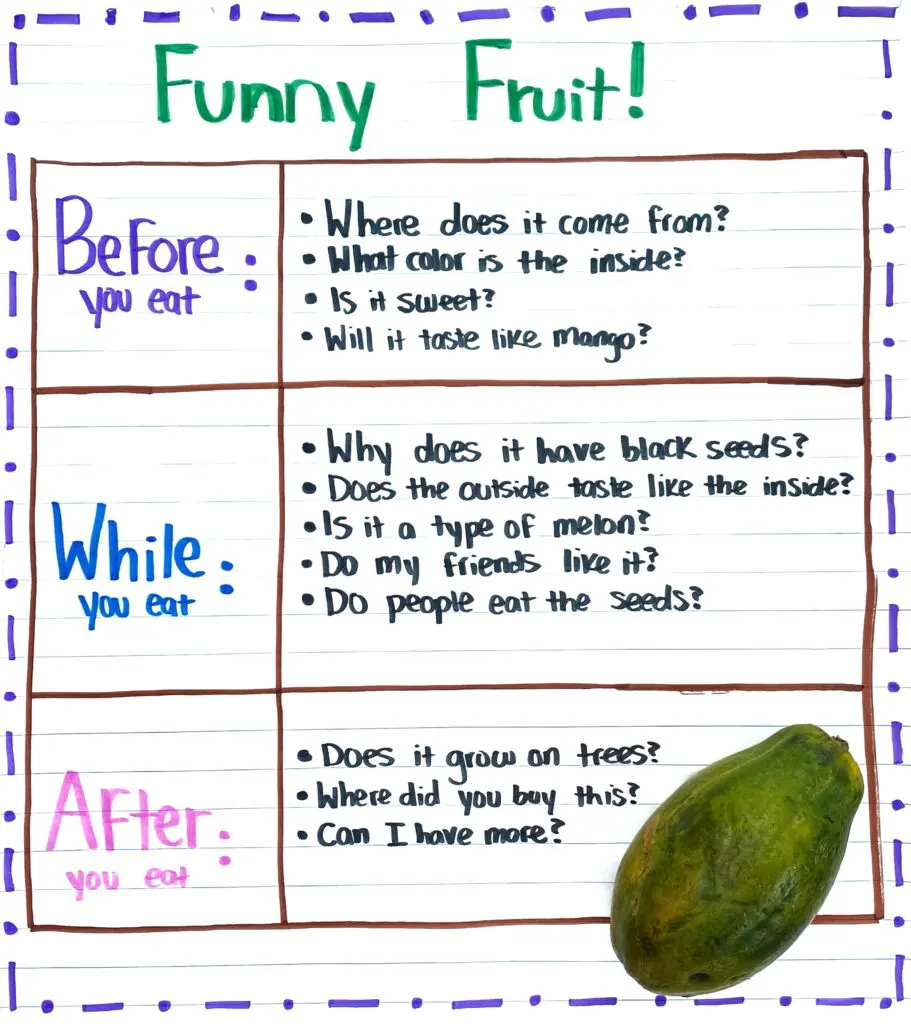 Funny Fruit!
Before :
you eat
• Where does it come from?
• What color is the inside?
• Is it sweet?
• Will it taste like mango?
While :
you eat
• Why does it have black seeds?
• Does the outside taste like the inside?
• Is it a type of melon?
• Do my friends like it?
• Do people eat the seeds?
After :
you eat
• Does it grow on trees?
• Where did you buy this?
• Can I have more?